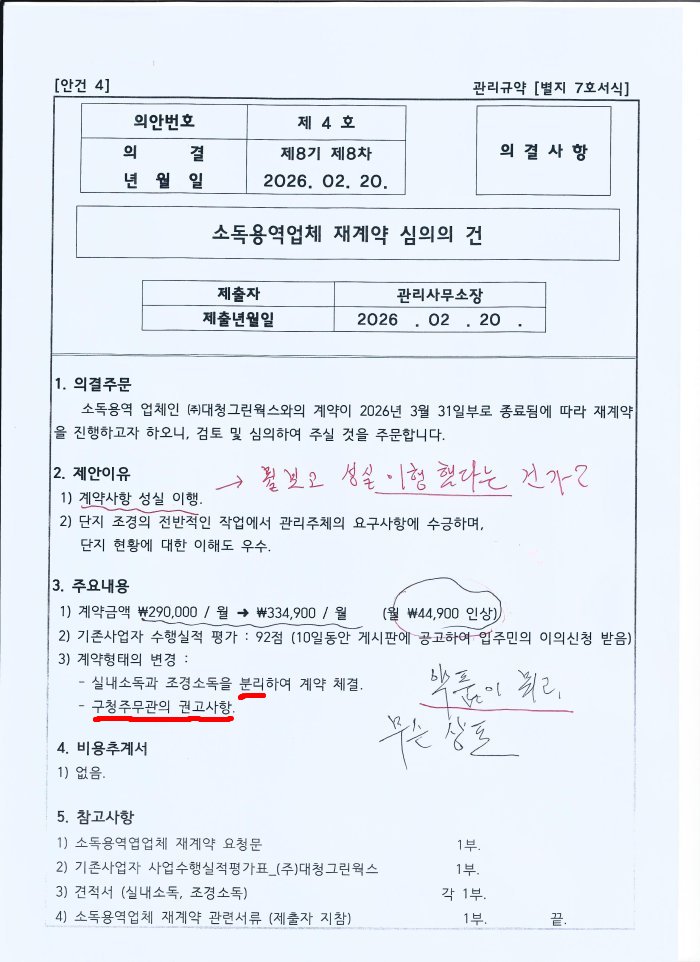 [안건 4]
관리규약 [별지 7호서식]
의안번호 제 4 호
의 결 제8기 제8차
년 월 일 2026. 02. 20.
의 결 사 항
소독용역업체 재계약 심의의 건
제출자 관리사무소장
제출년월일 2026 . 02 . 20 .
1. 의결주문
소독용역 업체인 ㈜대청그린웍스와의 계약이 2026년 3월 31일부로 종료됨에 따라 재계약
을 진행하고자 하오니, 검토 및 심의하여 주실 것을 주문합니다.
2. 제안이유
→ 뭘보고 성실 이행 했다는 건가?
1) 계약사항 성실 이행.
2) 단지 조경의 전반적인 작업에서 관리주체의 요구사항에 수긍하며,
단지 현황에 대한 이해도 우수.
3. 주요내용
1) 계약금액 ₩290,000 / 월 ➜ ₩334,900 / 월 (월 ₩44,900 인상)
2) 기존사업자 수행실적 평가 : 92점 (10일동안 게시판에 공고하여 입주민의 이의신청 받음)
3) 계약형태의 변경 :
- 실내소독과 조경소독을 분리하여 계약 체결.
- 구청주무관의 권고사항.
약품이 뭐고,
무슨 상표
4. 비용추계서
1) 없음.
5. 참고사항
1) 소독용역엽업체 재계약 요청문 1부.
2) 기존사업자 사업수행실적평가표_(주)대청그린웍스 1부.
3) 견적서 (실내소독, 조경소독) 각 1부.
4) 소독용역업체 재계약 관련서류 (제출자 지참) 1부. 끝.